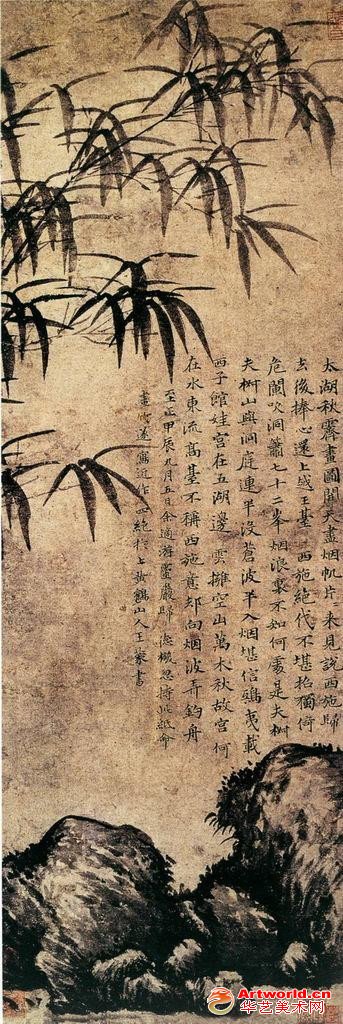 太湖秋霽畫圖開天盡烟帆片片來見說西施歸
去後捧心還上越王臺 西施絕代不堪招獨倚
危闌吹洞簫七十二峯烟浪裏不知何處是夫椒
夫椒山與洞庭連半沒蒼波半入烟堪信鴟夷載
西子館娃宮在五湖邊 雲擁空山萬木秋故宮何
在水東流高臺不稱西施意却向烟波弄釣舟
至正甲辰九月五日余適游靈巖歸 德機忽持此紙命
畫竹遂寫近作四絕於上黃鶴山人王蒙書
Artworld.cn
华艺美术网